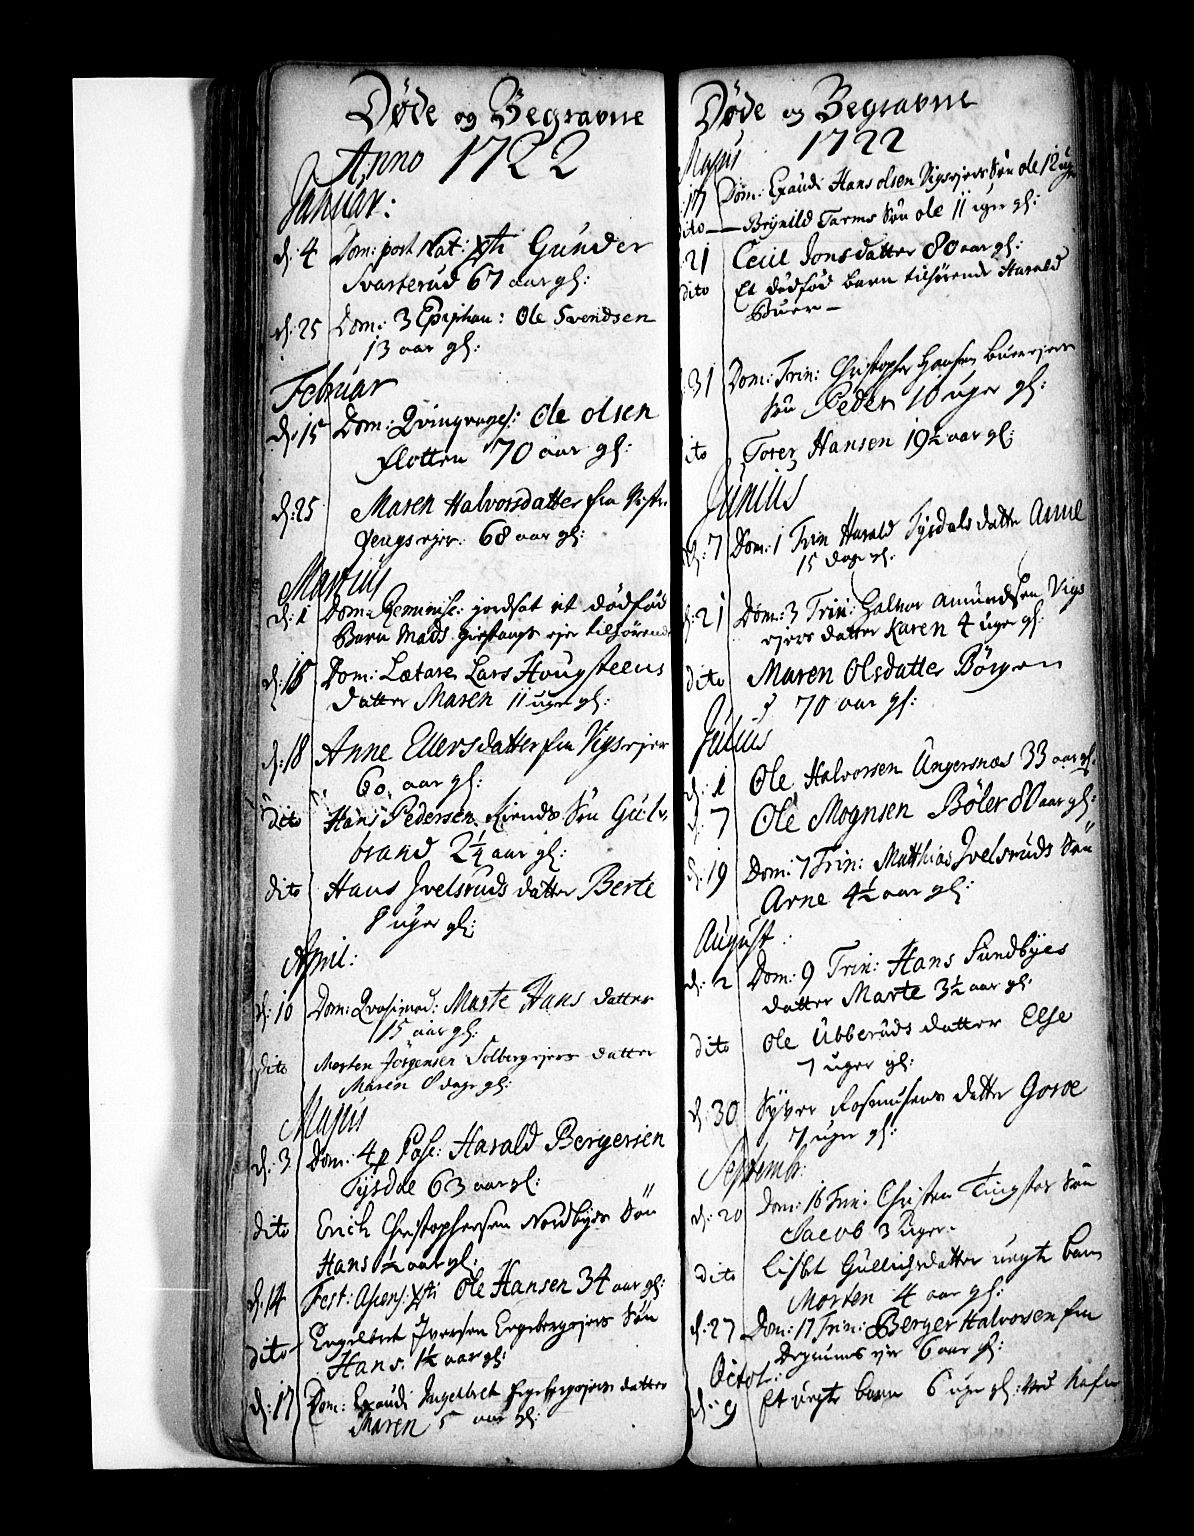 Døde og Begravne
Anno 1722
Januar:
d. 4 Dom: post Nat: Xsti Gunder
Svarterud 67 aar gl:
d. 25 Dom: 3 Epiphan: Ole Svendsen
13 aar gl:
Februar
d. 15 Dom: Qvinqvages: Ole olsen
flotten 70 aar gl:
d. 25 Maren Halvorsdatter fra
68 aar gl:
Martius
d. 1 Dom: Reminisc: jordsat et dødfød
Barn Mads ejer tilhørende
d. 15 Dom: Lætare Lars Hougsteens
datter Maren 11 uger gl:
d. 18 Anne Ellersdatter fra Vigs ejer
60 aar gl:
dito Hans Pedersen Riends Søn Gul-
brand 2¼ aar gl:
dito Hans Ivelsruds datter Berte
8 uger gl:
April:
d. 10 Dom: Qvasimod: Marte Hans datter
15 aar gl:
dito Morten Jørgensen Solbergejers datter
Maren 8 dage gl:
Majus
d. 3 Dom: 4 p Pasc: Harald Bergersen
Tysdal 63 aar gl:
dito Erich Christophersen Nordbyes Søn
Hans ½ aar gl:
d. 14 Fest: Ascens: Xsti Ole Hansen 34 aar gl:
dito Engelbret Iversen Engebergejers Søn
Hans 1½ aar gl:
d. 17 Dom: Exaudi Ingelbret datter
Maren 5 aar gl:
Døde og Begravne
1722
Majus
17 Dom: Exaudi Hans olsen Vigsejers Søn ole 12 uger
dito Brynild Tarms Søn ole 11 uger gl:
21 Cecil Jonsdatter 80 aar gl:
dito Et dødfød barn tilhørende Harald
Buer
31 Dom: Trin: Christopher Hansen buerejers
Søn Peder 10 uger gl:
dito Torer Hansen 19½ aar gl:
Junius
d. 7 Dom: 1 Trin Harald Tysdals datter Anne
15 dage gl:
d. 21 Dom: 3 Trin: Halvor Amundsen Vigs
ejers datter Karen 4 uger gl:
dito Maren Olsdatter Børgen
70 aar gl:
Julius
d. 1 Ole Halvorsen Ungersnæs 33 aar gl.
d. 7 Ole Mognsen Böler 80 aar gl:
d. 19 Dom: 7 Trin: Matthias Ivelsruds Søn
Arne 4½ aar gl:
August:
d. 2 Dom: 9 Trin: Hans Sundbyes
datter Marte 3½ aar gl:
dito Ole Ubberuds datter Else
7 uger gl:
d. 30 Syver Rasmusens datter Goroe
7 uger gl:
Septemb:
d. 20 Dom: 16 Trin: Christen Tingstør Søn
Jacob 3 uger.
dito Lisbet Gullichsdatter uægte barn
Morten 4 aar gl:
d. 27 Dom: 17 Trin: Berger Halvorsen fra
ejer 6 aar gl:
Octob:
d. 9 Et uægte barn 6 uger gl: ved